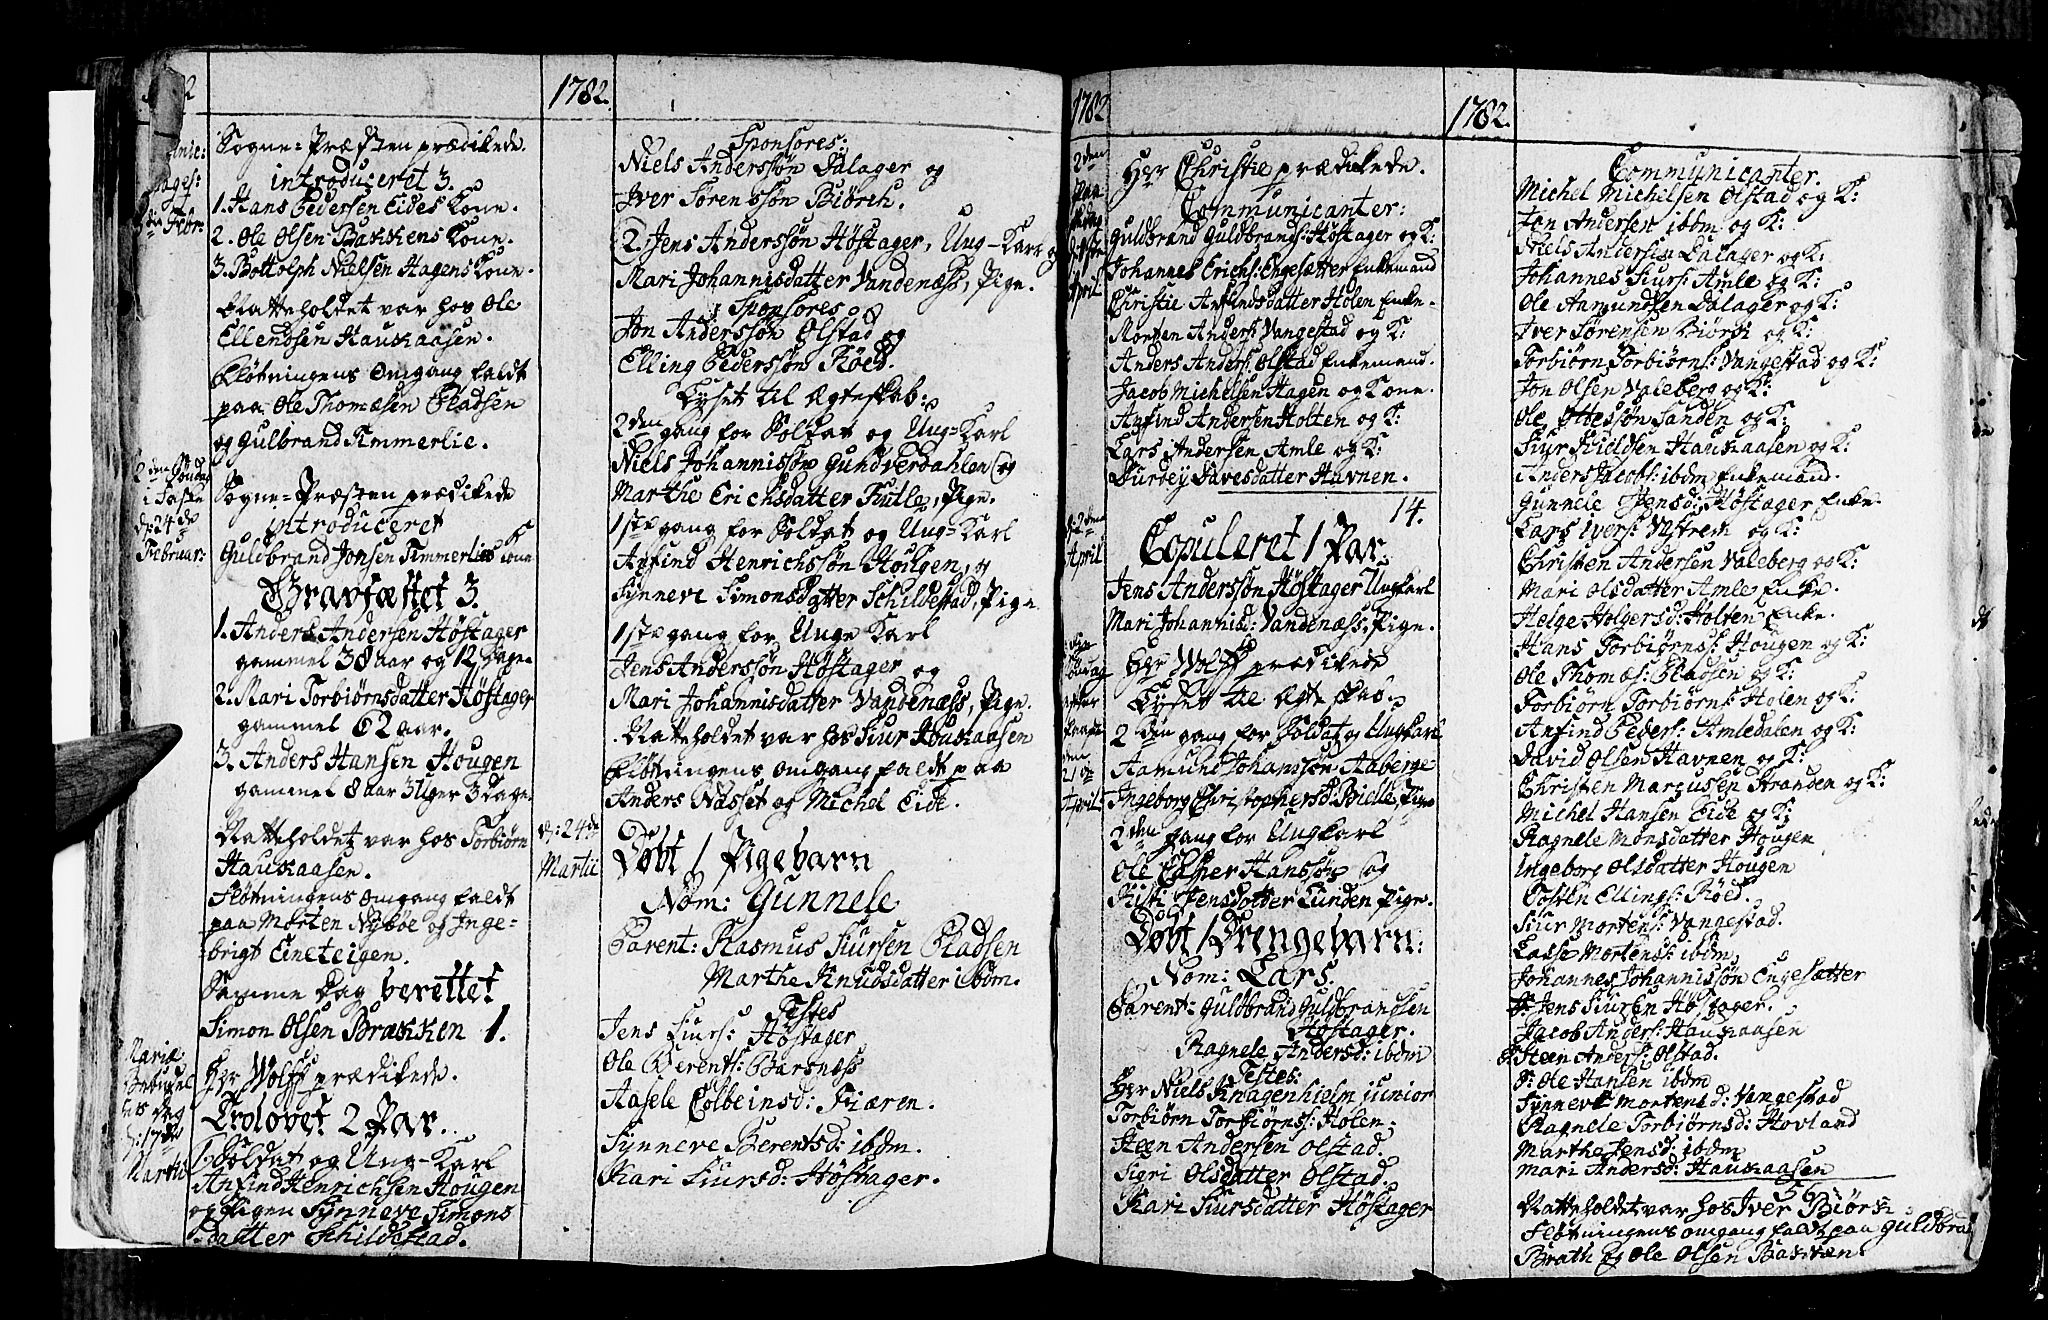 1782.
Sogne-Præsten prædikede.
introduceret 3.
1. Hans Pedersen Eides Kone.
2. Ole Olsen Bakkens Kone.
3. Bottolph Nielsen Hagens Kone.
Natteholdet var hos Ole
Ellendsen Haukaasen.
Fløtningens Omgang faldt
paa Ole Thomasen Pladsen
og Gulbrand Timmerlie.
2den Søndag
i Faste
d: 24de
Februar:
Sogne-Præsten prædikede
introduceret
Guldbrand Jonsen Timmerlies Kone
Gravfæstet 3.
1. Anders Andersen Høstager
gammel 38 aar og 12 Dage.
2. Mari Torbiørnsdatter Høstager
gammel 62 aar.
3. Anders Hansen Hougen
gammel 8 aar 3 Uger 3 Dage.
Natteholdet var hos Torbiørn
Haukaasen.
Fløtningens omgang faldt
paa Morten Nybøe og Inge-
brigt Eneteigen.
Samme Dag berettet
Simon Olsen Brækken 1.
Mariæ
d: 17de
Martii
Hr Wolff prædikede.
Trolovet 2 Par.
1. Soldat og Ung-Karl
Anfind Henrichsen Hougen
og Pigen Synneve Simons
Datter Schildestad.
Sponsores:
Niels Anderssøn Dalager og
Iver Sørenssøn Biørch.
2. Jens Anderssøn Høstager, Ung-Karl og
Mari Johannisdatter Vandenæss, Pige.
Sponsores
Jon Anderssøn Olstad og
Elling Pederssøn Røed.
Lyset til Ægteskab:
2den gang for Soldat og Ung-Karl
Niels Johannissøn Gundverdahlen og
Marthe Erichsdatter Kulle, Pige.
1ste gang for Soldat og Ung-Karl
Anfind Henrichssøn Hougen, og
Synneve Simonsdatter Schildestad, Pige.
1ste gang for Unge Karl
Jens Anderssøn Høstager og
Mari Johannisdatter Vandenæss, Pige.
Natteholdet var hos Siur Houkaasen
Fløtningens omgang faldt paa
Anders Nasset og Michel Eide.
d: 24de
Martii
Døbt 1 Pigebarn
Nom: Gunnele
Parent: Rasmus Siursen Pladsen
Marthe Knudsdatter ibdm.
Testes
Jens Siurs: Høstager
Ole Berents: Barsnæss
Aasele Colbeinsd: Fiæren.
Synneve Berentsd: ibdm.
Kari Siursd: Høstager.
1782
2den
Paa
April
Hr Christie prædikede.
Communicanter:
Guldbrand Guldbrands: Høstager og K:
Johannes Erichs: Engesætter Enkemand
Christie Anfindsdatter Holen Enke.
Morten Anders: Vangestad og K:
Anders Anders: Olstad Enkemand.
Jacob Michelsen Hagen og Kone.
Anfind Andersen Holten og K:
Lars Andersen Amle og K:
Durdey Davesdatter Havnen.
14.
d: 2den
April
Copuleret 1 Par.
Jens Anderssøn Høstager Ungkarl
Mari Johannisd: Vandenæss, Pige.
21de
April
Hr Wolff prædikede
Lyset til Ægteskab:
2den gang for Soldat og Ungkarl
Aamund Johanssøn Aaberge
Ingeborg Christophersd: Bielle, Pige
2den gang for Ungkarl
Ole Esper Hanssøn og
Kisti Jensdotter Lunden Pige.
Døbt 1 Drengebarn:
Nom: Lars.
Parent: Guldbrand Guldbrandsen
Høstager.
Ragnele Andersd: ibdm
Testes:
Hr Niels Knagenhielm junior
Torbiørn Torbiørns: Holen:
Steen Andersen Olstad.
Sigri Olsdatter Olstad.
Kari Siursdatter Høstager
1782.
Communicanter.
Michel Michelsen Olstad og K:
Jon Andersen ibdm og K:
Niels Andersen Dalager og K:
Johannes Siurs: Amle og K:
Ole Aamundsen Dalager og K:
Iver Sørensen Biørk og K:
Torbiørn Torbiørns: Vangestad og K:
Jon Olsen Valeberg og K:
Ole Ottessøn Sanden og K:
Siur Kieldsen Haukaasen og K:
Anders Jacobs: ibdm Enkemand.
Gunnele Jensd: Høstager Enke.
Lars Ivers: Vestrem og K:
Christen Andersen Valeberg og K:
Mari Olsdatter Amle Enke.
Helge Holgersd: Holten Enke.
Hans Torbiørns: Hougen og K:
Ole Thomes: Pladsen og K:
Torbiørn Torbiørns: Holen og K:
Anfind Peders: Amledalen og K:
David Olsen Havnen og K:
Christen Marcusen Stranden og K:
Michel Hansen Eide og K:
Ragnele Monsdatter Hougen
Ingeborg Olsdatter Hougen
Tosten Ellings: Røed.
Siur Mortens: Vangestad.
Lasse Mortens: ibdm.
Johannes Johannissøn Engesætter
S: Jens Siursen Høstager.
Jacob Anders: Haukaasen
S: Steen Anders: Olstad.
S: Ole Hansen ibdm
Synneve Mortensd: Vangestad
Ragnele Torbiørnsd: Hovland
Marthe Jensd: ibdm
Mari Andersd: Haukaasen
56.
Natteholdet var hos Iver Biørk.
Fløtningens omgang faldt paa Guldbra
Brath og Ole Olsen Bakken.